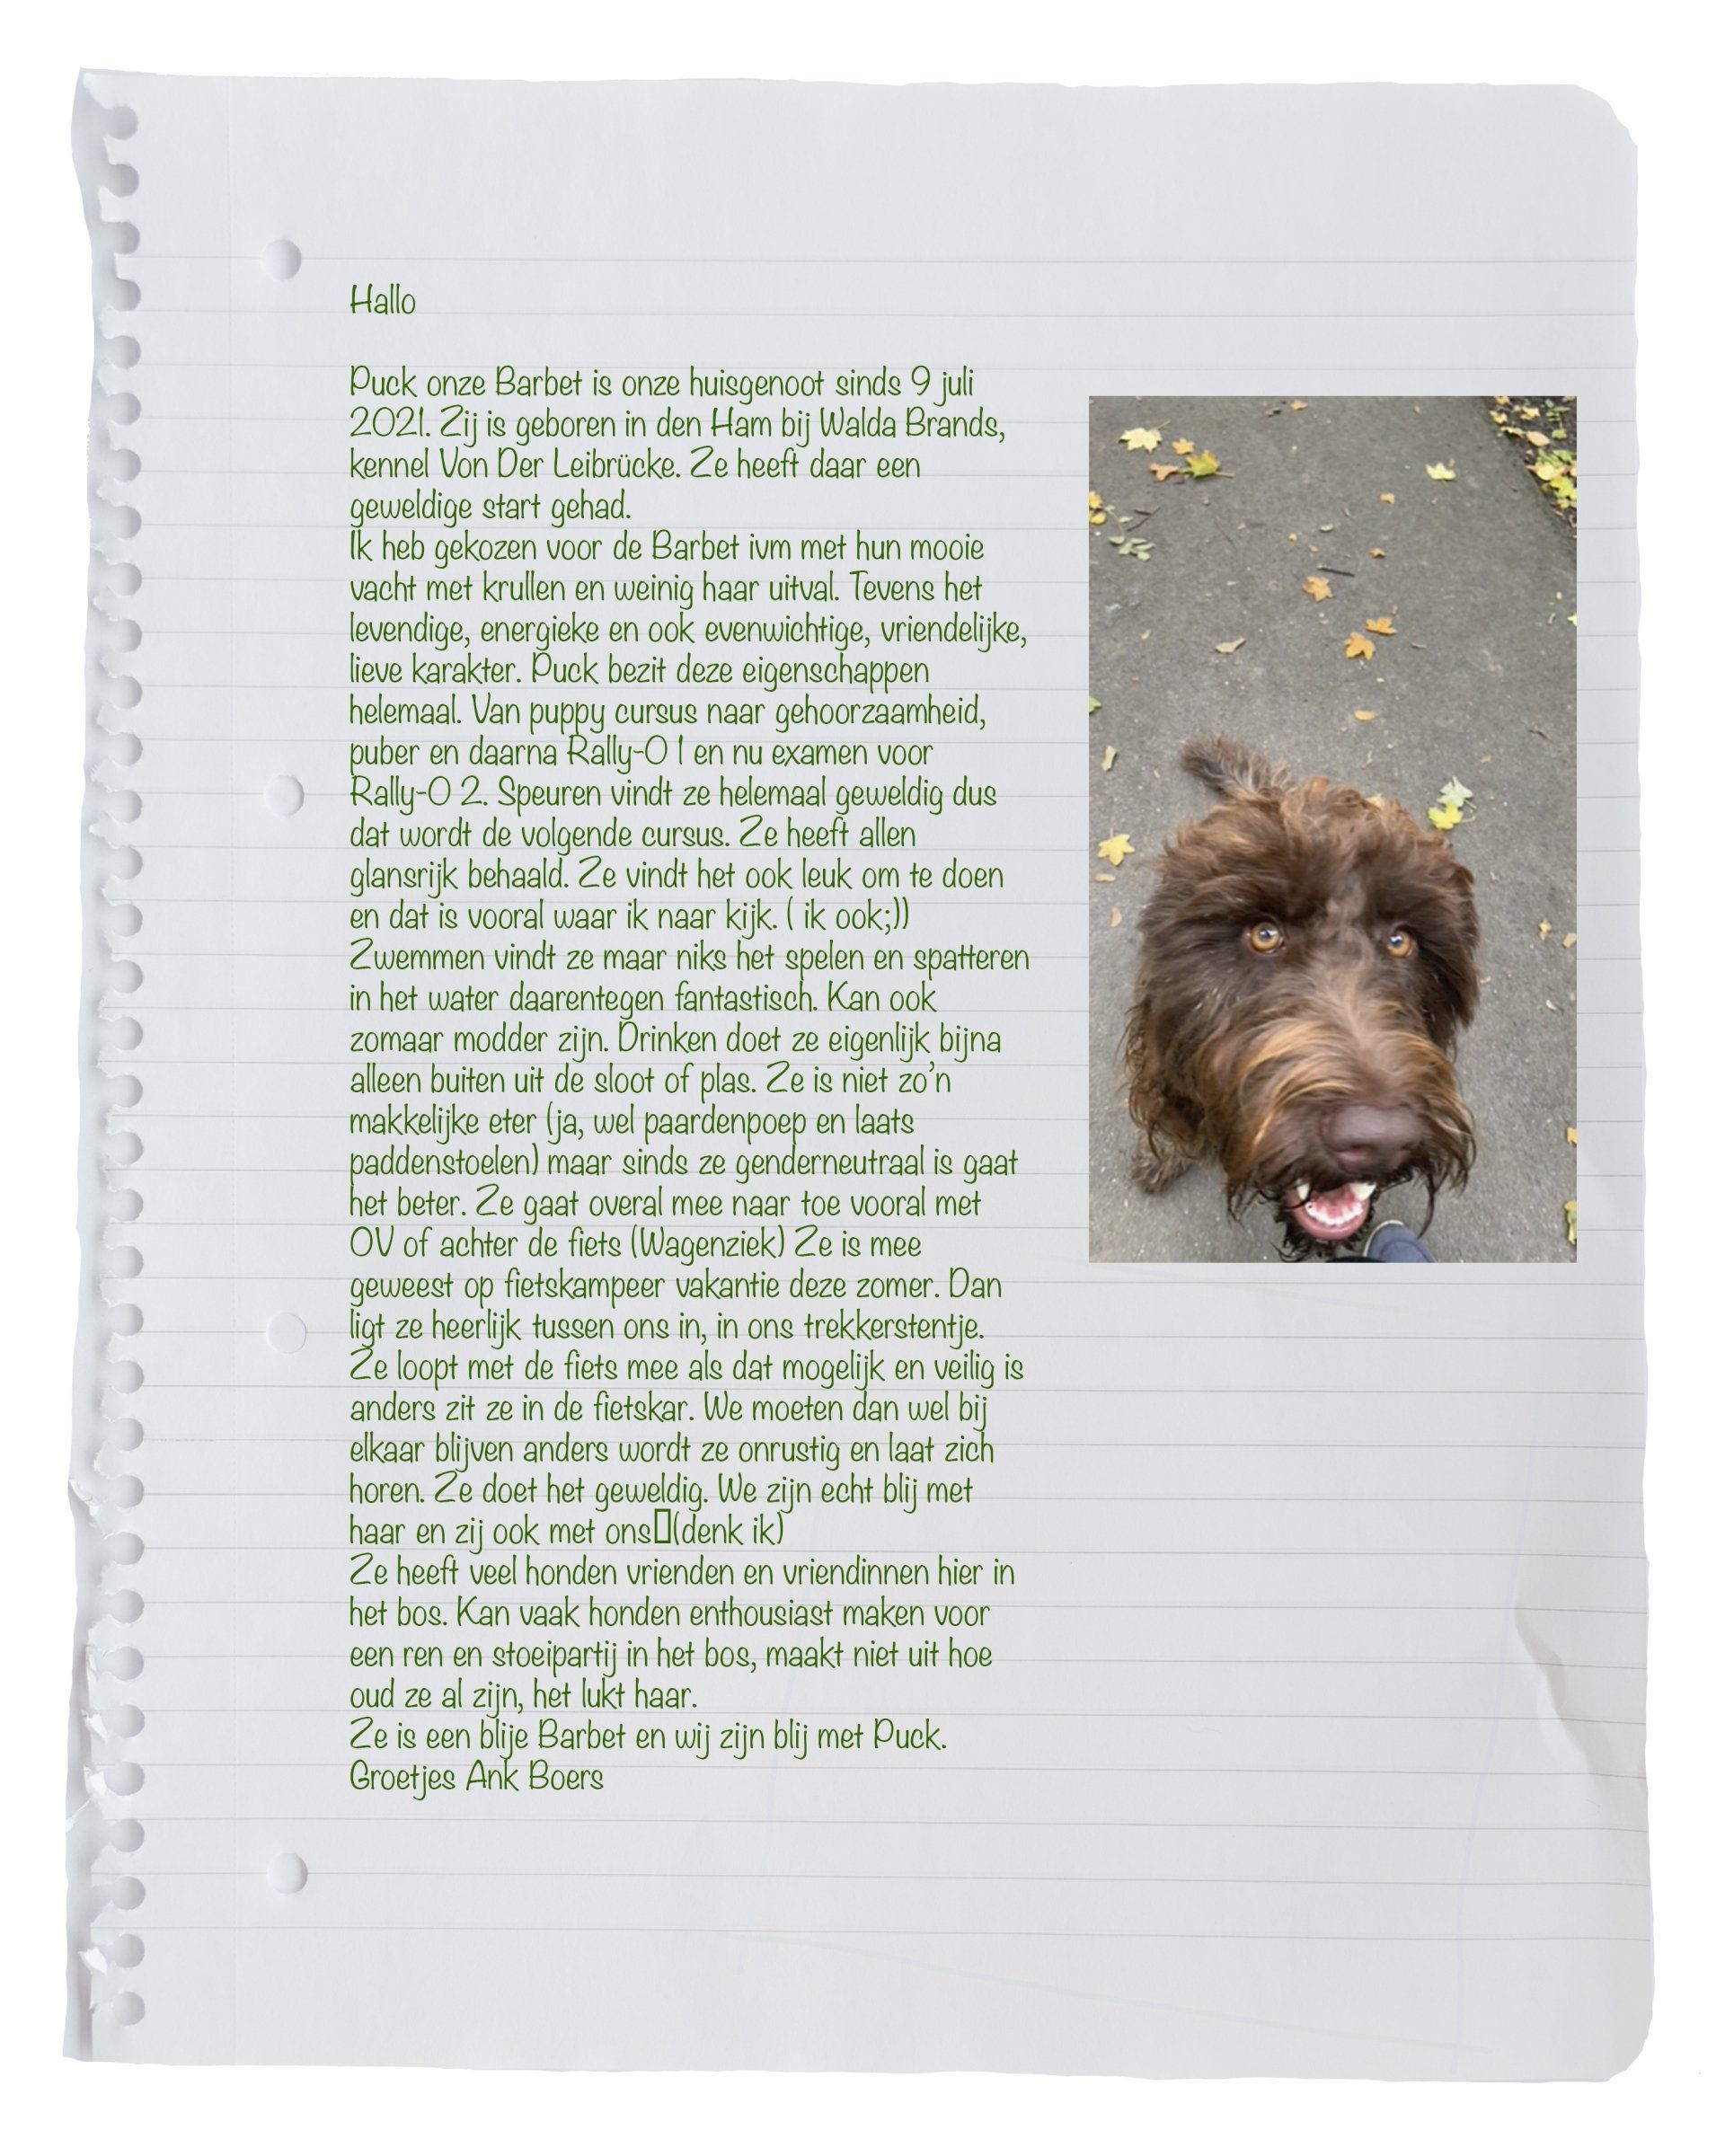 Hallo
Puck onze Barbet is onze huisgenoot sinds 9 juli
2021. Zij is geboren in den Ham bij Walda Brands,
kennel Von Der Leibrücke. Ze heeft daar een
geweldige start gehad.
Ik heb gekozen voor de Barbet ivm met hun mooie
vacht met krullen en weinig haar uitval. Tevens het
levendige, energieke en ook evenwichtige, vriendelijke,
lieve karakter. Puck bezit deze eigenschappen
helemaal. Van puppy cursus naar gehoorzaamheid,
puber en daarna Rally-O 1 en nu examen voor
Rally-O 2. Speuren vindt ze helemaal geweldig dus
dat wordt de volgende cursus. Ze heeft allen
glansrijk behaald. Ze vindt het ook leuk om te doen
en dat is vooral waar ik naar kijk. ( ik ook;))
Zwemmen vindt ze maar niks het spelen en spatteren
in het water daarentegen fantastisch. Kan ook
zomaar modder zijn. Drinken doet ze eigenlijk bijna
alleen buiten uit de sloot of plas. Ze is niet zo'n
makkelijke eter (ja, wel paardenpoep en laats
paddenstoelen) maar sinds ze genderneutraal is gaat
het beter. Ze gaat overal mee naar toe vooral met
OV of achter de fiets (Wagenziek) Ze is mee
geweest op fietskampeer vakantie deze zomer. Dan
ligt ze heerlijk tussen ons in, in ons trekkerstentje.
Ze loopt met de fiets mee als dat mogelijk en veilig is
anders zit ze in de fietskar. We moeten dan wel bij
elkaar blijven anders wordt ze onrustig en laat zich
horen. Ze doet het geweldig. We zijn echt blij met
haar en zij ook met ons(denk ik)
Ze heeft veel honden vrienden en vriendinnen hier in
het bos. Kan vaak honden enthousiast maken voor
een ren en stoeipartij in het bos, maakt niet uit hoe
oud ze al zijn, het lukt haar.
Ze is een blije Barbet en wij zijn blij met Puck.
Groetjes Ank Boers